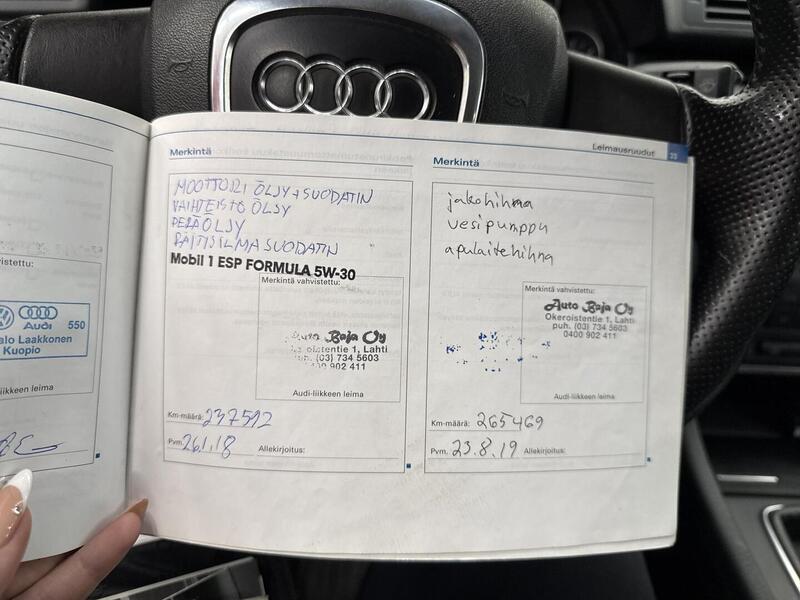 Leimausruudut 23
vistettu:
Audi 550
alo Laakkonen
Kuopio
iikkeen leima
Merkintä
MOOTTORI ÖLJY + SUODATIN
VAIHTEISTO ÖLJY
PERÄ ÖLJY
RAITISILMA SUODATIN
Mobil 1 ESP FORMULA 5W-30
Merkintä vahvistettu:
Auto Baja Oy
oistentie 1, Lahti
uh. (03) 734 5603
00 902 411
Audi-liikkeen leima
Km-määrä: 237592
Pvm. 26.1.18 Allekirjoitus:
Merkintä
jakohihna
vesipumppu
apulaitehihna
Merkintä vahvistettu:
Auto Baja Oy
Okeroistentie 1, Lahti
puh. (03) 734 5603
0400 902 411
Audi-liikkeen leima
Km-määrä: 265469
Pvm. 23.8.19 Allekirjoitus: